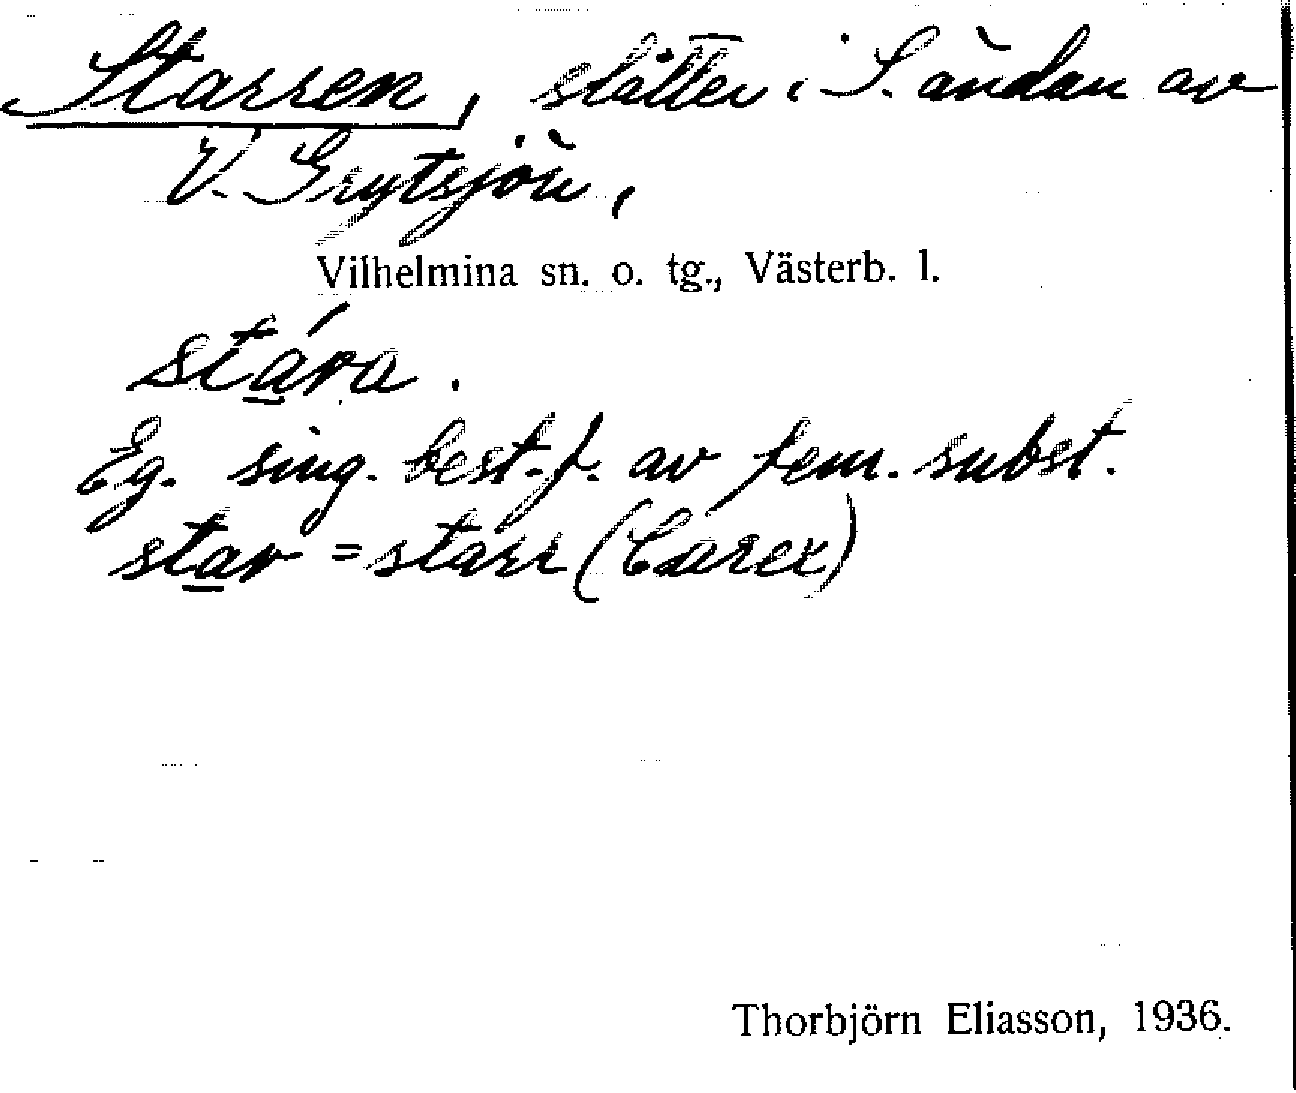 Starren, slåtter i S. ändan av
V. Grytsjön,
Vilhelmina sn. o. tg., Västerb. l.
stára.
Eg. sing. best. f. av fem. subst.
star = starr (Carex)
Thorbjörn Eliasson, 1936.